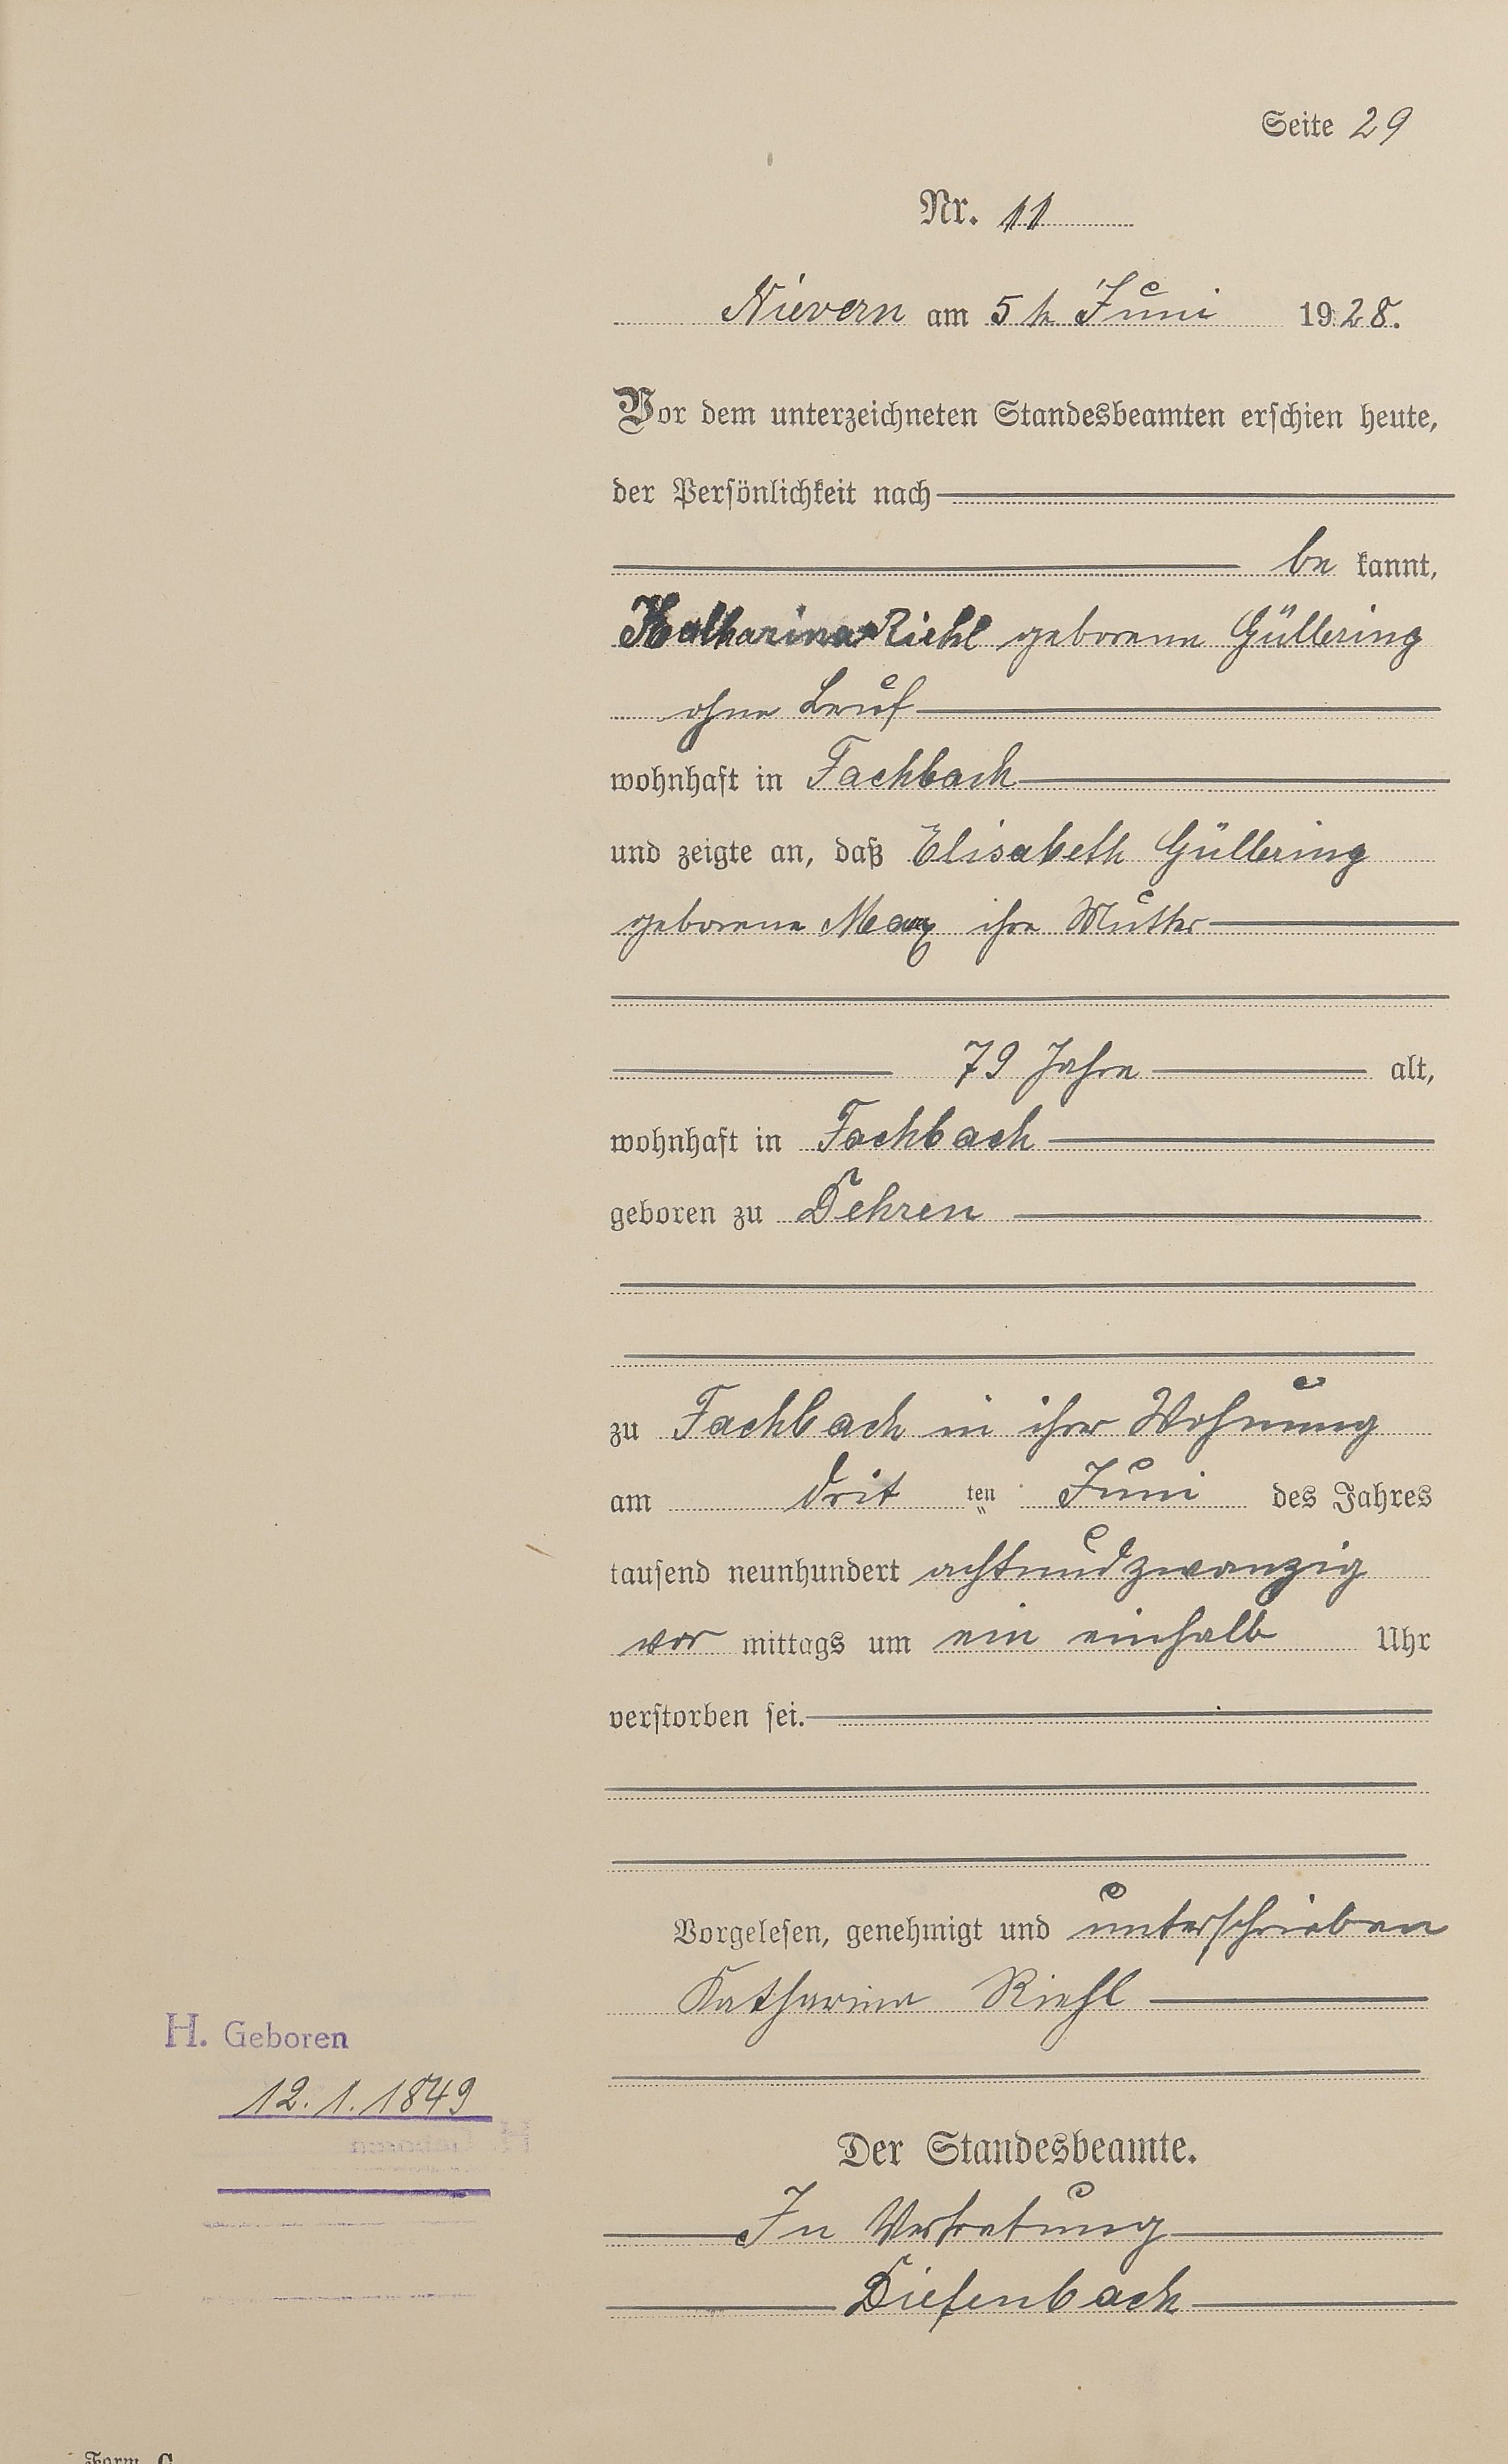 Seite 29
Nr. 11
Nievern am 5 tn Juni 1928.
Vor dem unterzeichneten Standesbeamten erschien heute,
der Persönlichkeit nach
be kannt,
Katharina Riehl geborene Güllering
ohne Beruf
wohnhaft in Fachbach
und zeigte an, daß Elisabeth Güllering
geborene Marx ihre Mutter
79 Jahre alt,
wohnhaft in Fachbach
geboren zu Dehren
zu Fachbach in ihrer Wohnung
am drit ten Juni des Jahres
tausend neunhundert achtundzwanzig
vor mittags um ein einhalb Uhr
verstorben sei.
Vorgelesen, genehmigt und unterschrieben
Katharina Riehl
H. Geboren
12.1.1849
Der Standesbeamte.
In Vertretung
Diefenbach
Form. C